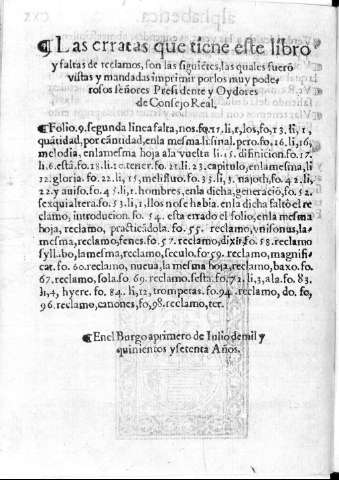 ¶Las erratas que tiene este libro
y faltas de reclamos, son las siguiẽtes, las quales fuerõ
vistas y mandadas imprimir por los muy pode-
rosos señores Presidente y Oydores
de Consejo Real.
¶Folio.9. segunda linea falta, nos. fo, li, 1, los, fo, 13. li, 1,
quãtidad, por cãntidad, enla mesma li. sinal. pero. fo, 16. li, 16,
melodia, enla mesma hoja ala vuelta li. 15. difinicion. fo. 17.
li. 6. está. fo. 13. li. 10. tener. fo. 21. li. 23. capitulo, enla mesma, li
22. gloria. fo. 22. li, 15, melifluo. fo. 33. li, 3. najoth, fo. 42. li,
22. y auiso, fo. 45. li, 1. hombres, en la dicha, generaciõ, fo. 52.
sexquialtera. fo. 53. li, 1, llos no se habia. enla dicha faltò el re
clamo, introducion. fo. 54. esta errado el folio, enla mesma
hoja, reclamo, practicãdola. fo. 55. reclamo, vnisonus, la-
mesma, reclamo, fenes. fo. 57. reclamo, dixit. fo. 58. reclamo
syllabo, la mesma, reclamo, seculo. fo. 59. reclamo, magnifi-
cat. fo. 60. reclamo, nueua, la mesma hoja, reclamo, baxo. fo.
67. reclamo, sola. fo. 69. reclamo. sesta. fo. 72. li, 3, ala. fo. 83.
li, 4, hyere. fo. 84. li, 12, trompetas. fo. 94. reclamo, do. fo,
96. reclamo, canones, fo, 98. reclamo, ter.
¶Enel Burgo a primero de Iulio de mil y
quinientos y setenta Años.